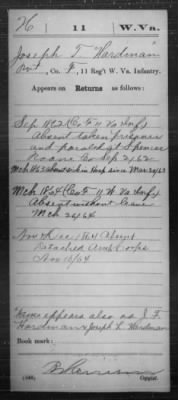 H | 11 | W.Va.
Joseph T. Hardman
Pvt., Co. F, 11 Reg't W. Va. Infantry.
Appears on Returns as follows:
Sep 1862 (Co F 11 Va Inf)
Absent taken prisoner
and paroled at Spencer
Roane Co Sep 2, 62
Mch 1863 absent sick in Hosp since Mar 24/63
Mch 1864 (Co F 11 W Va Inf)
Absent without leave
Mch 24/64
Nov & Dec 1864 Absent
Detached Amb Corps
Nov 10/64
Name appears also as J. F.
Hardman & Joseph L. Hardman
Book mark:
(546)
Copyist.